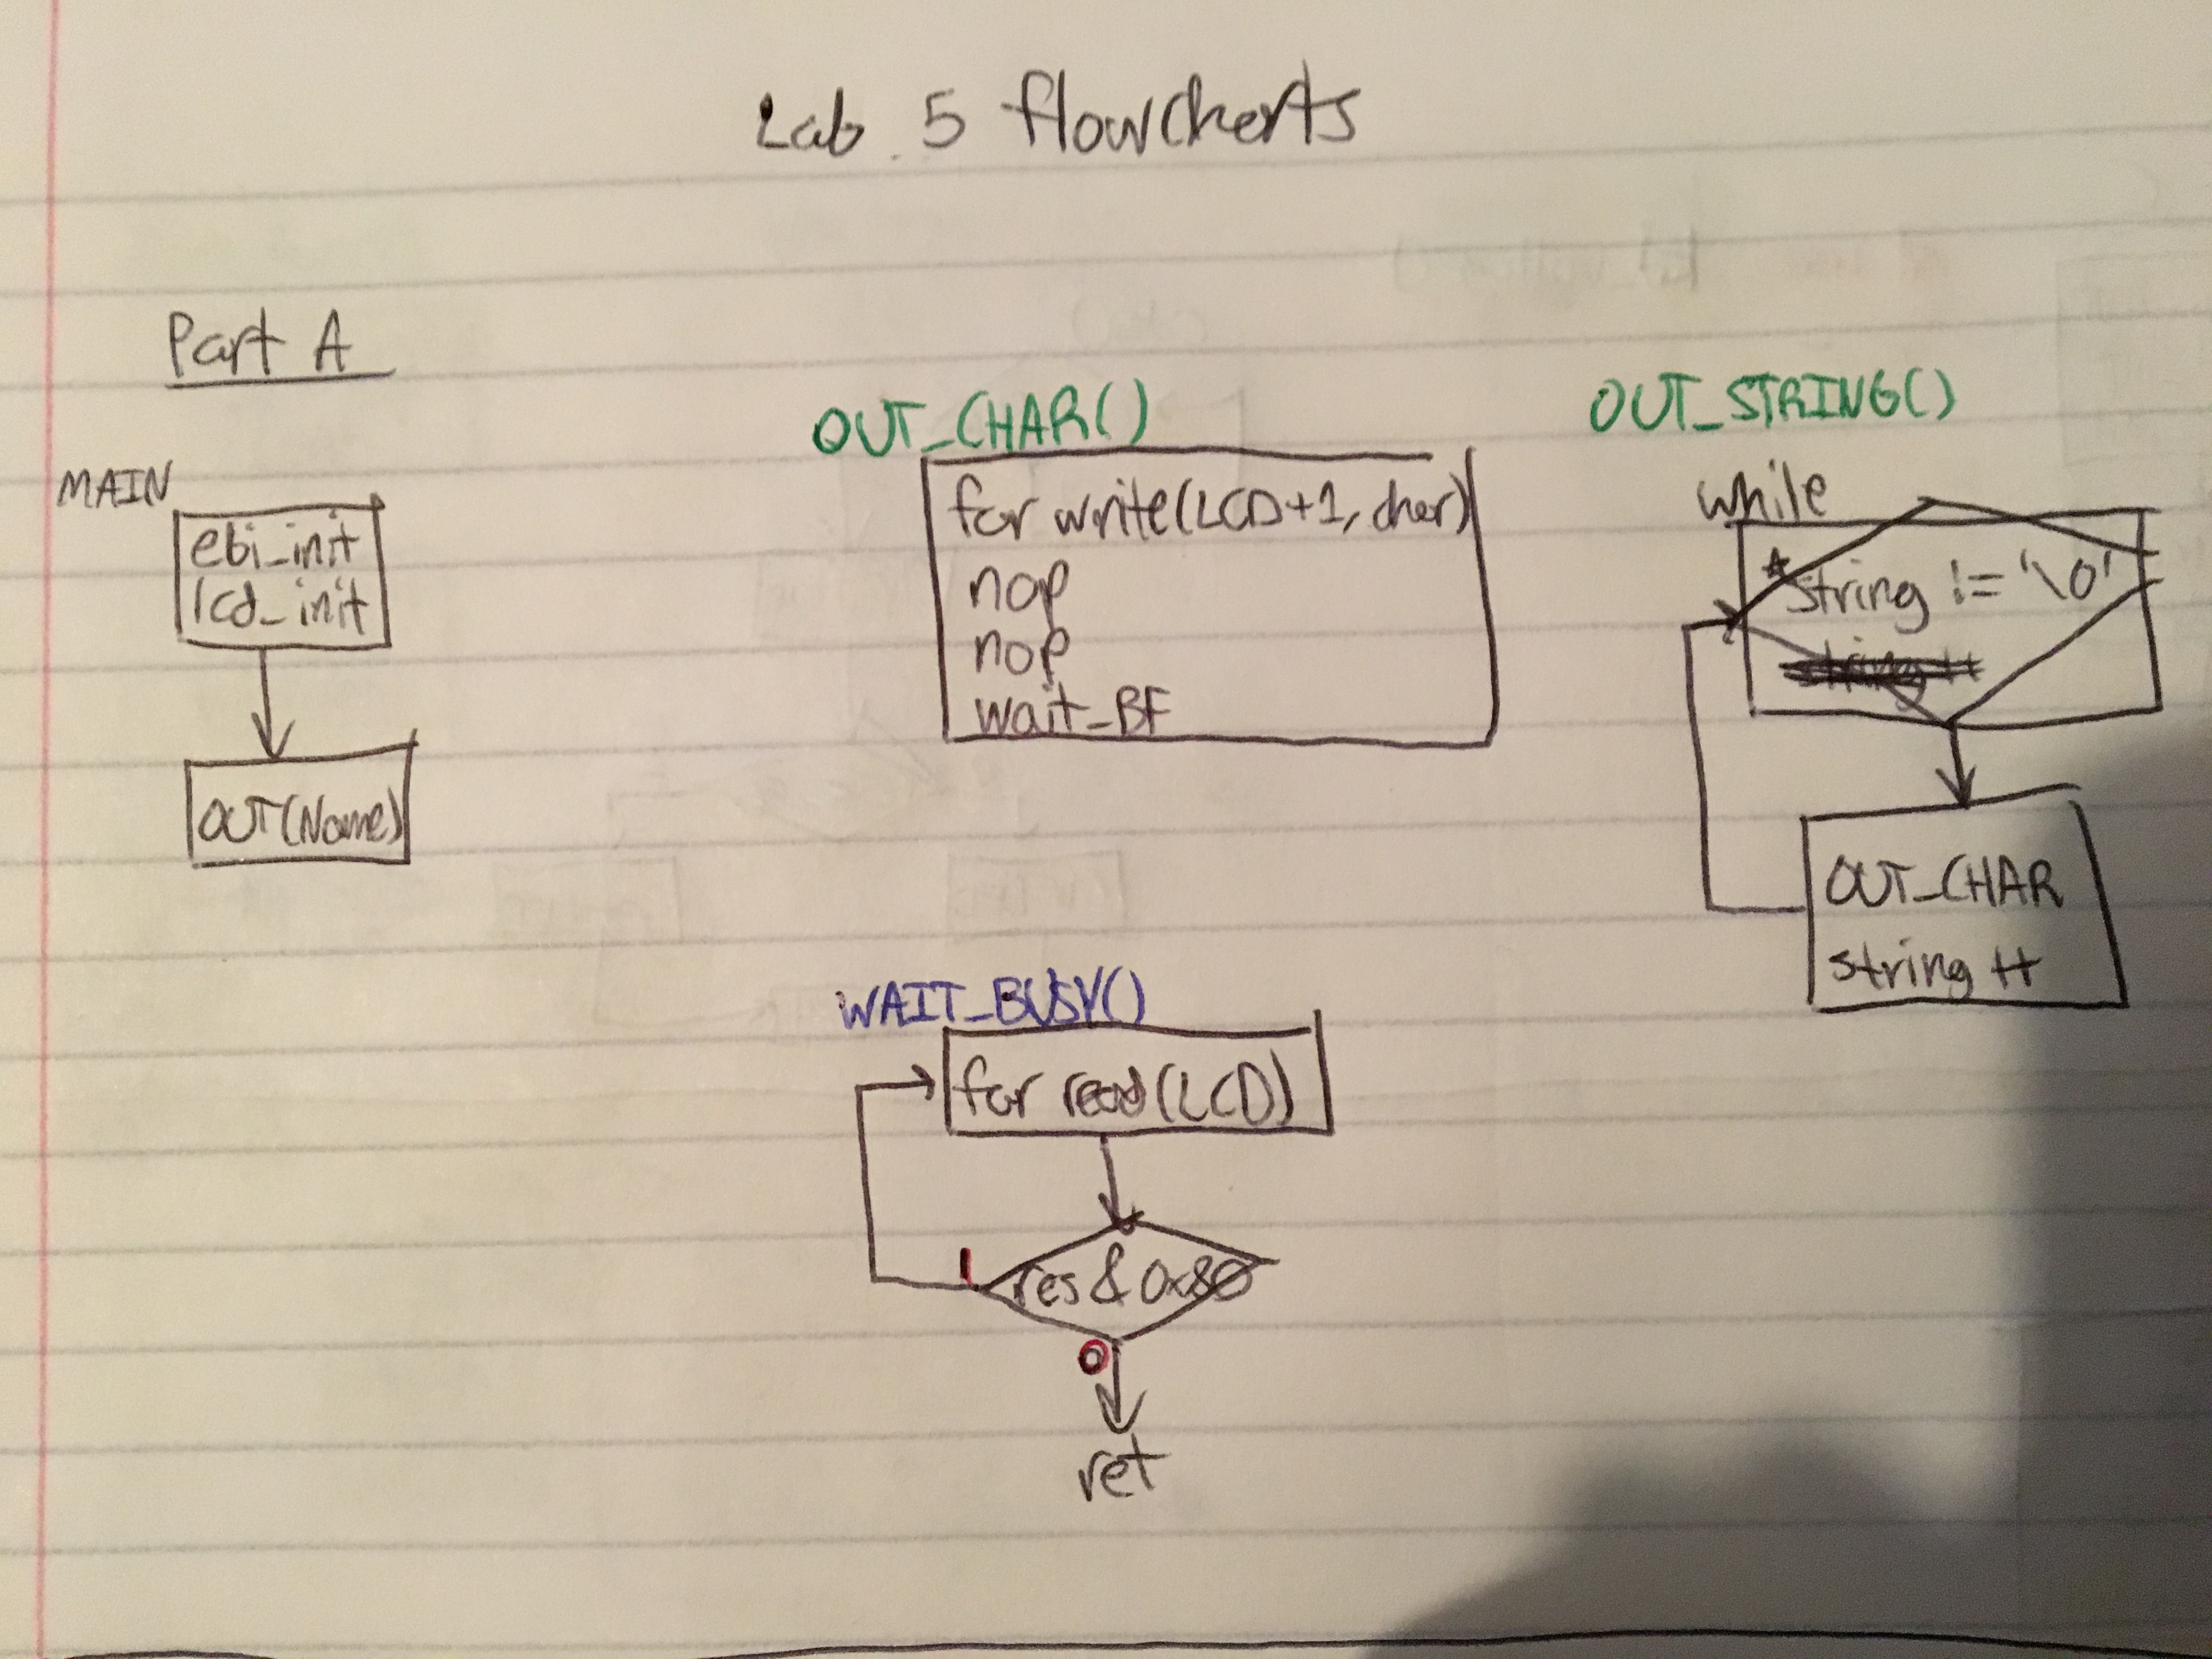 Lab 5 flowcharts
Part A
MAIN
ebi_init
lcd_init
OUT(Name)
OUT_CHAR()
far write(LCD+1, char)
nop
nop
wait_BF
WAIT_BUSY()
far read(LCD)
res & 0x80
1
0
ret
OUT_STRING()
while
*string != '\0'
OUT_CHAR
string ++